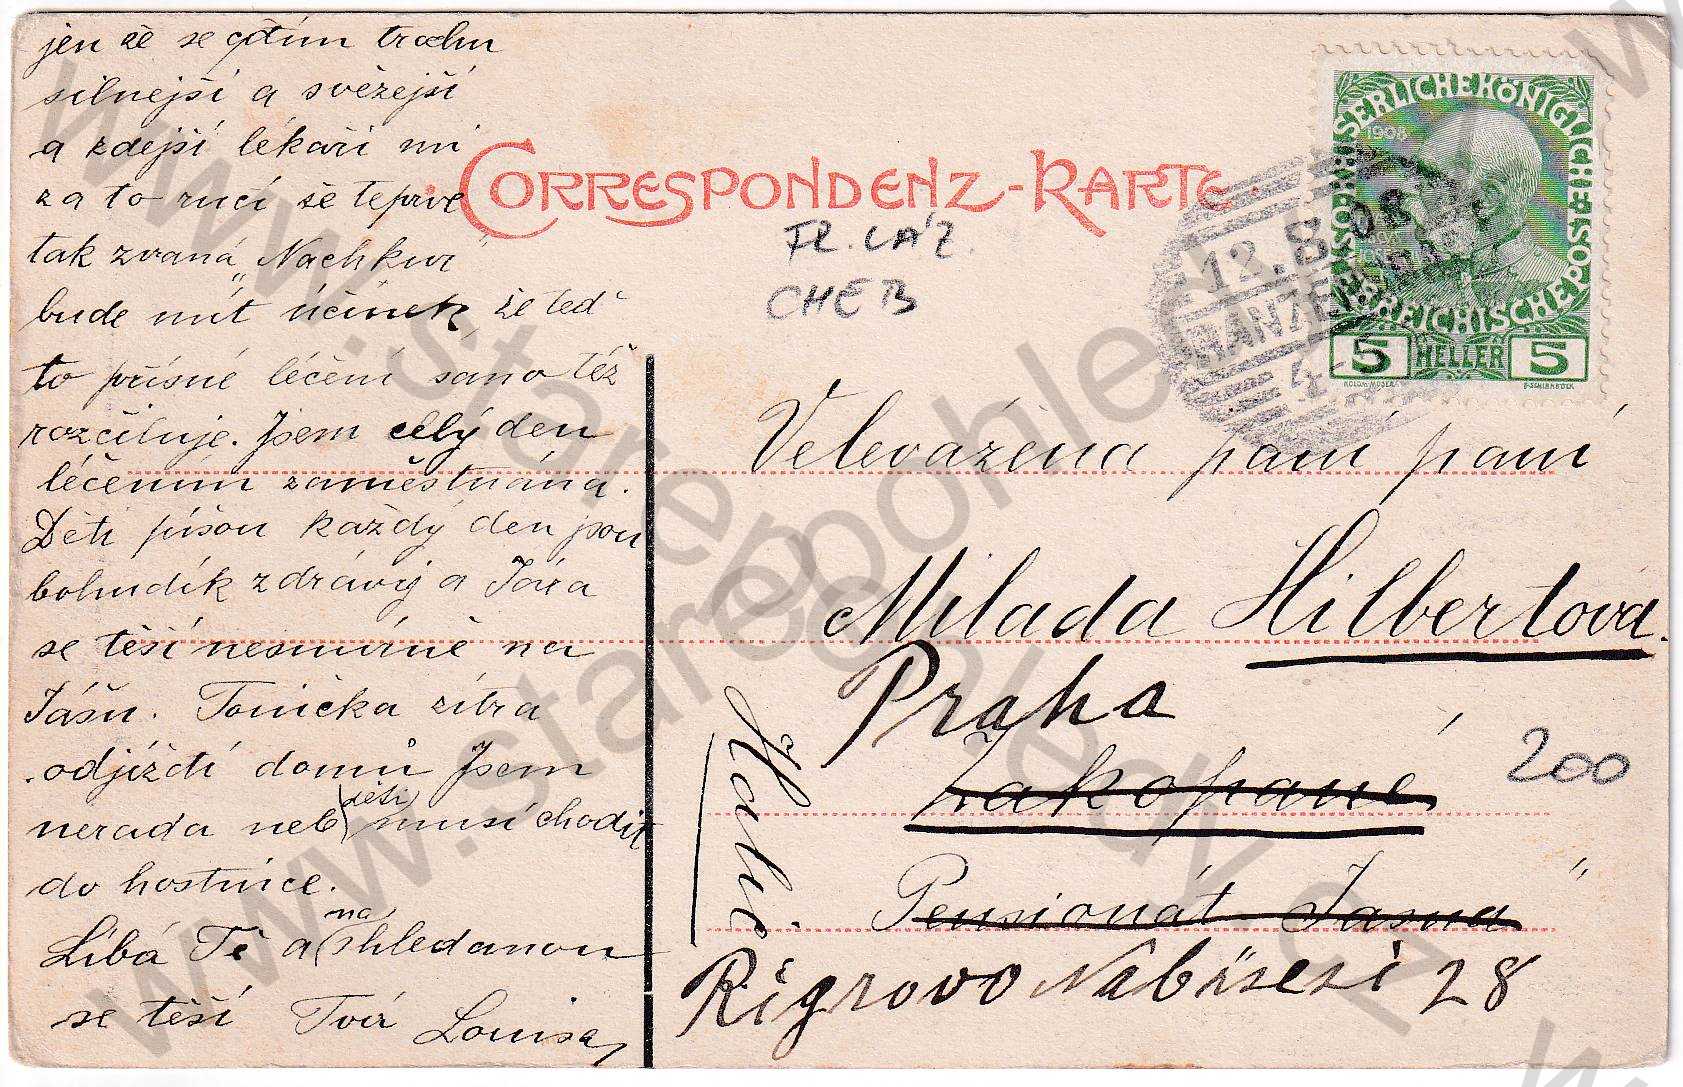 jen že se cítím trochu
silnejší a svěžejší
a zdejší lékaři mi
za to ručí že teprve
tak zvaná „Nachkur"
bude mít účinek, že teď
to přísné léčení samo též
rozčiluje. Jsem celý den
léčením zaměstnána.
Děti píšou každý den jsou
bohudík zdrávy a Jára
se těší nesmírně na
Jášu. Tonička zítra
odjíždí domů Jsem
nerada neb děti musí chodit
do hostince.
Líbá Tě a na shledanou
se těší Tvá Louisa
CORRESPONDENZ-KARTE.
FR. LÁZ.
CHEB
KAISERLICHEKÖNIGLICHE ÖSTERREICHISCHE POST
1908
5 HELLER 5
KOLOM. MOSER
F. SCHIRNBÖCK
12.8.08
FRANZE
Velevážená paní paní
Milada Hilbertova.
Praha
Zakopané
Halič
Pensionát Jasna"
Rigrovo Nábřeseí 28
200
www.starepohledy.cz
www.starepohledy.cz